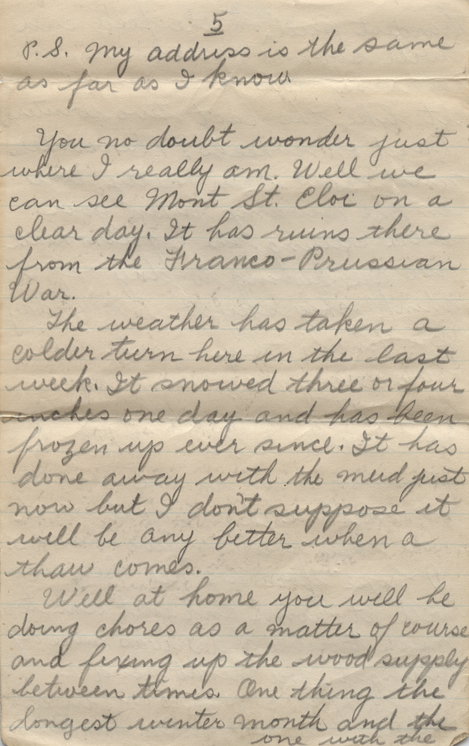 5
P.S. My address is the same
as far as I know
You no doubt wonder just
where I really am. Well we
can see Mont St. Cloi on a
clear day. It has ruins there
from the Franco-Prussian
War.
The weather has taken a
colder turn here in the last
week. It snowed three or four
inches one day and has been
frozen up ever since. It has
done away with the mud just
now but I don't suppose it
will be any better when a
thaw comes.
Well at home you will be
doing chores as a matter of course
and fixing up the wood supply
between times. One thing the
longest winter month and the
one with the